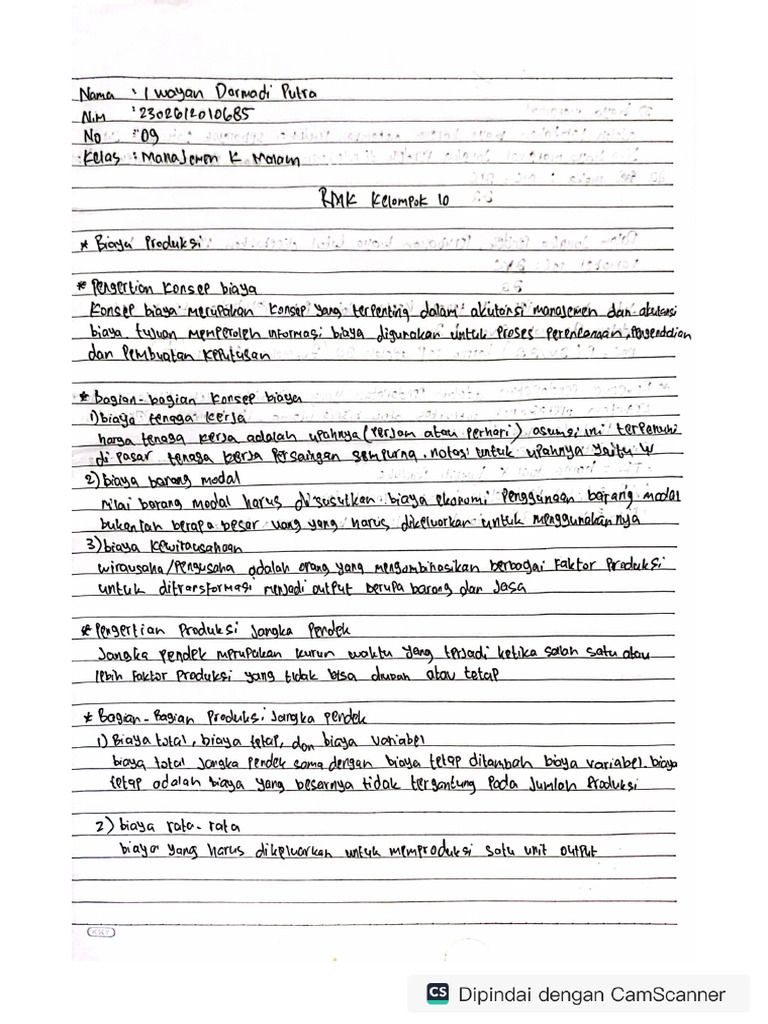 Nama : I wayan Darmadi Putra
NIM : 2302612010685
No : 09
Kelas : Manajemen K Malam
RMK Kelompok 10
* Biaya Produksi
* Pengertian Konsep biaya
Konsep biaya merupakan konsep yang terpenting dalam akutansi manajemen dan akutansi
biaya tujuan memperoleh informasi biaya digunakan untuk proses perencanaan, Pengendalian
dan Pembuatan keputusan
* Bagian-bagian konsep biaya
1) biaya tenaga kerja
harga tenaga kerja adalah upahnya (Perjam atau perhari) asumsi ini terpenuhi
di pasar tenaga kerja Persaingan sempurna. notasi untuk upahnya yaitu W
2) biaya barang modal
nilai barang modal harus disusutkan. biaya ekonomi penggunaan barang modal
bukanlah berapa besar uang yang harus dikeluarkan untuk menggunakannya
3) biaya kewirausahaan
wirausaha/Pengusaha adalah orang yang mengombinasikan berbagai Faktor Produksi
untuk ditransformasi menjadi output berupa barang dan Jasa
* Pengertian Produksi Jangka Pendek
Jangka pendek merupakan kurun waktu yang terjadi ketika salah satu atau
lebih Faktor Produksi yang tidak bisa diubah atau tetap
* Bagian-Bagian Produksi Jangka pendek
1) Biaya total, biaya tetap, dan biaya variabel
biaya total Jangka Pendek sama dengan biaya tetap ditambah biaya variabel. biaya
tetap adalah biaya yang besarnya tidak tergantung Pada Jumlah Produksi
2) biaya rata-rata
biaya yang harus dikeluarkan untuk memproduksi satu unit output
KKY
CS Dipindai dengan CamScanner